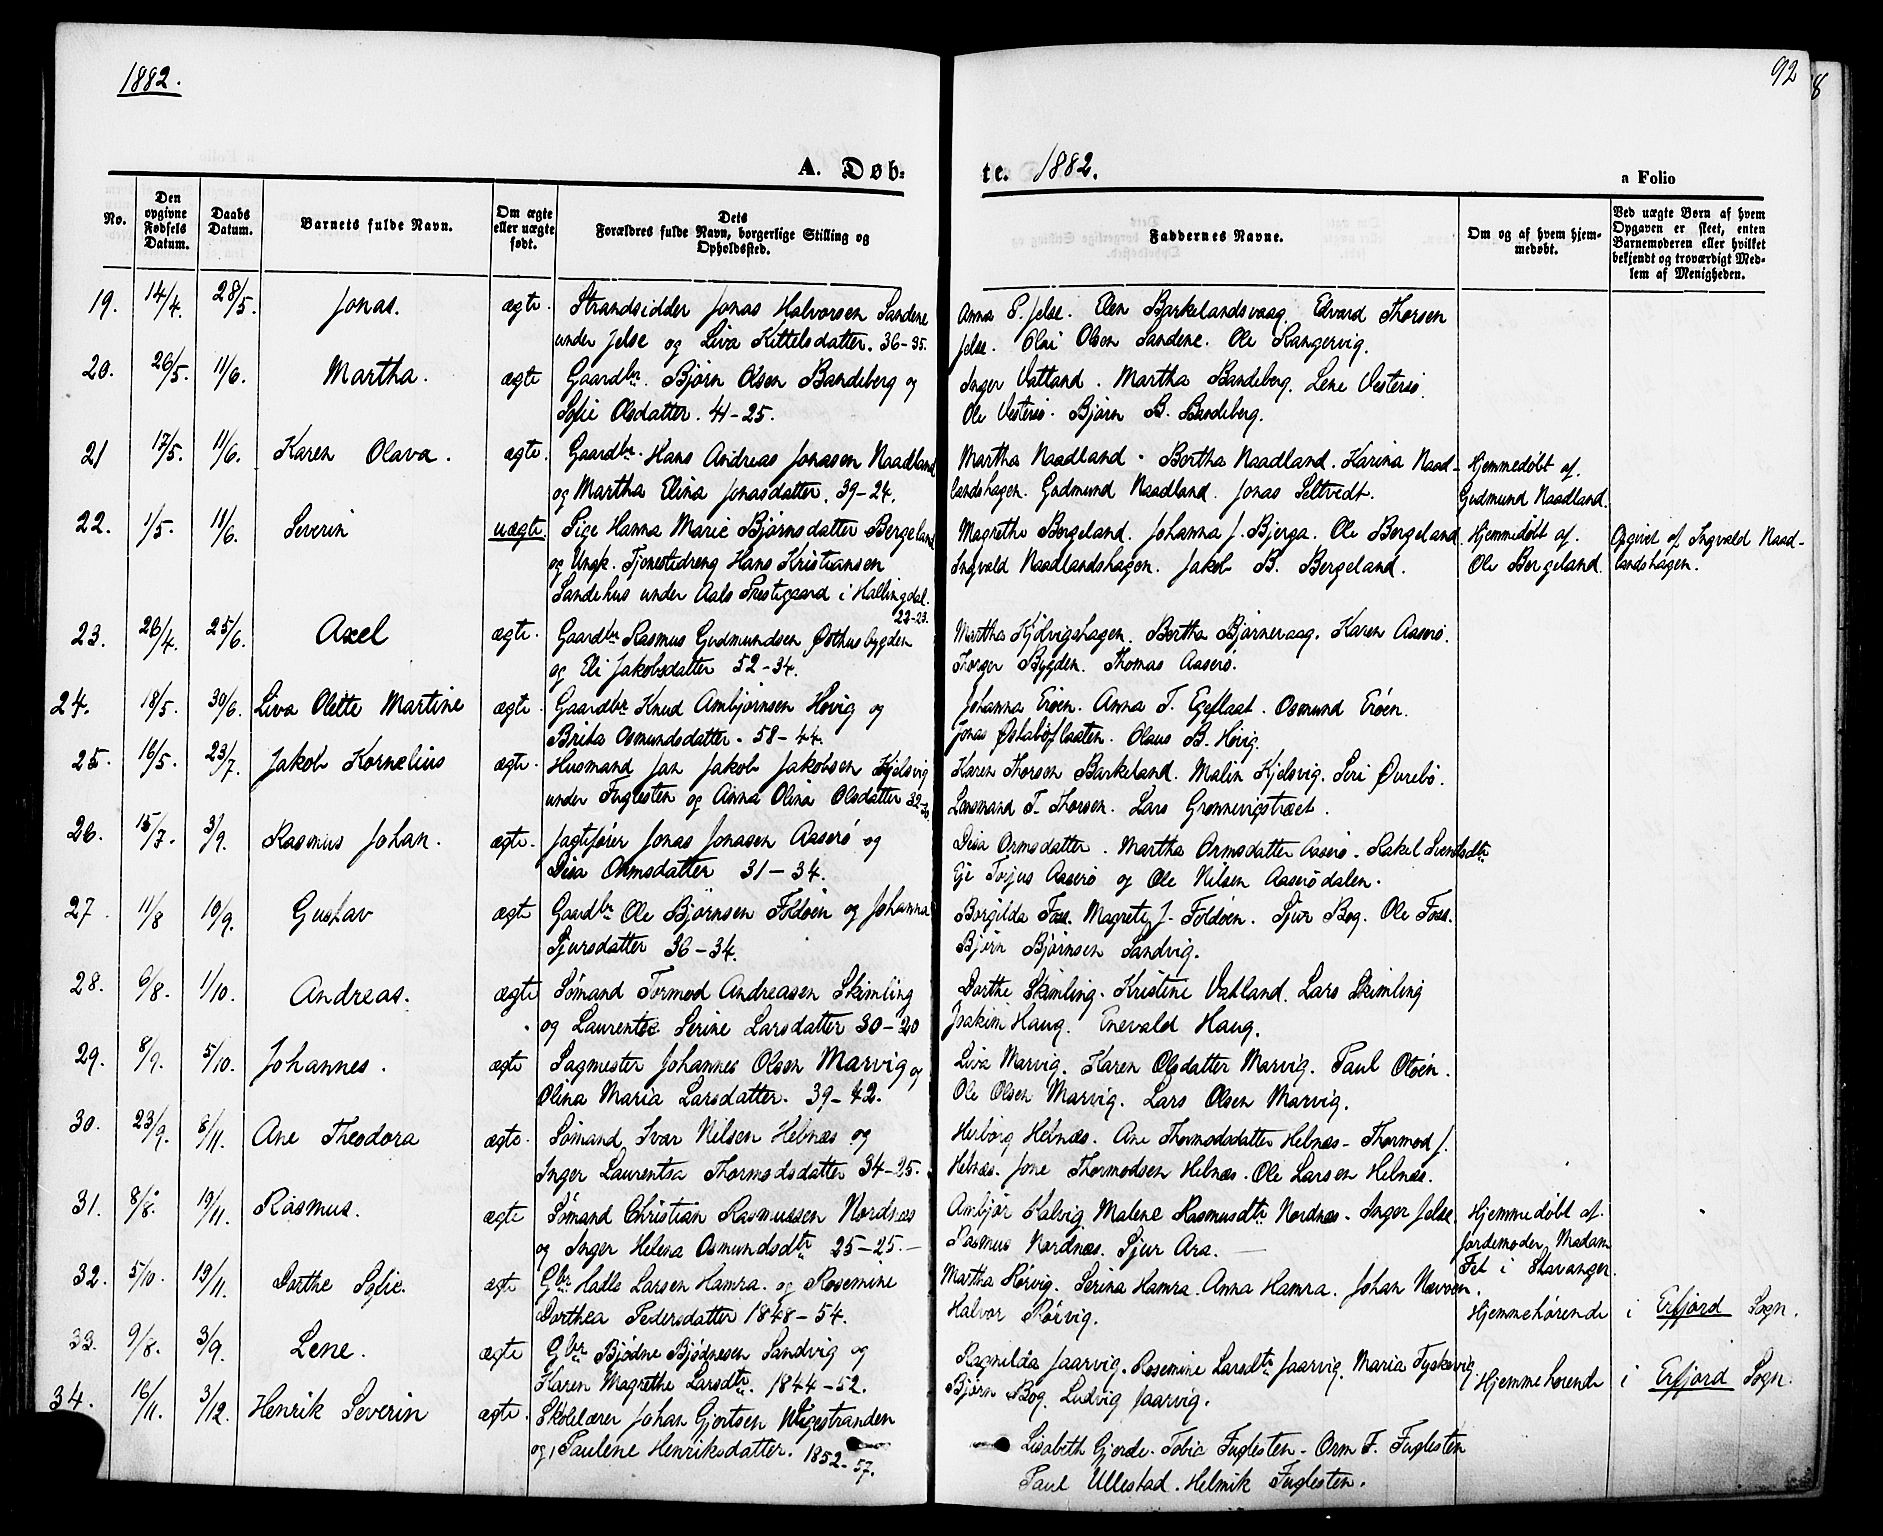 1882.
92
8
A. Døb-
te. 1882.
a Folio
No.
Den opgivne Fødsels Datum.
Daabs Datum.
Barnets fulde Navn.
Om ægte eller uægte født.
Dets Forældres fulde Navn, borgerlige Stilling og Opholdssted.
Faddernes Navne.
Om og af hvem hjemmedøbt.
Ved uægte Børn af hvem Opgaven er skeet, enten Barnemoderen eller hvilket bekjendt og troværdigt Medlem af Menigheden.
19. 14/4. 28/5. Jonas. ægte. Strandsidder Jonas Halvorsen Sandene
under Jelse og Liva Kittelsdatter. 36-35.
Anna P. Jelse. Elen Barkelandsvaag. Edvard Thorsen
Jelse. Olai Olsen Sandene. Ole Kangervig.
20. 26/5. 11/6. Martha. ægte Gaardbr. Bjørn Olsen Bandeberg og
Sofie Olsdatter. 41-25.
Inger Vatland. Martha Bandeberg. Lene Vestersø.
Ole Vestersø. Bjørn B. Bandeberg.
21 17/5. 11/6. Karen Olava. ægte. Gaardbr. Hans Andreas Jonasen Naadland
og Martha Elina Jonasdatter. 39-24.
Martha Naadland. Bertha Naadland. Karina Naad-
landshagen. Gudmund Naadland. Jonas Seltvedt.
Hjemmedøbt af.
Gudmund Naadland.
22. 1/5. 11/6. Severin uægte. Pige Hanna Marie Bjørnsdatter Bergeland
og Ungk. Tjenestedreng Hans Kristiansen
Sandehus under Aals Prestegaard i Hallingdal.
22-23.
Magrethe Bergeland. Johanna J. Bjerga. Ole Bergeland.
Ingvald Naadlandshagen. Jakob B. Bergeland.
Hjemmedøbt af.
Ole Bergeland.
Opgivet af Ingvald Naad-
landshagen.
23. 26/4. 25/6. Axel ægte. Gaardbr Rasmus Gudmundsen Østhusbygden
og Eli Jakobsdatter 52-34.
Martha Kjølvigshagen. Bertha Bjørnevaag. Karen Aaserø.
Torger Bygden. Thomas Aaserø.
24. 18/5. 30/6. Liva Olette Martine ægte. Gaardbr Knud Ambjørnsen Høvig og
Brita Osmundsdatter. 58-44.
Johanna Erøen. Anna T. Egeflaat. Osmund Erøen.
Jonas Østabøflaaten. Olaus B. Høvig.
25. 16/5. 23/7. Jakob Kornelius ægte. Husmand Jan Jakob Jakobsen Kjelsvig
under Fuglesten og Anna Olina Olsdatter 32-30
Karen Thorsen Barkeland. Malin Kjelsvig. Seri Øvrebø.
Lensmand T. Thorsen. Lars Grønnevigstræet.
26. 15/7. 3/9. Rasmus Johan. ægte. Jagtefører Jonas Jonasen Aaserø og
Disa Ormsdatter 31-34.
Disa Ormsdatter. Martha Ormsdatter Aaserø. Rakel Svendsdtr
Eje Torjus Aaserø og Ole Nilsen Aaserødalen.
27 11/8 10/9. Gustav ægte Gaardbr Ole Bjørnsen Foldøen og Johanna
Sjursdatter 36-34.
Borgilda Foss. Magrete J. Foldøen. Sjur Bog. Ole Foss.
Bjørn Bjørnsen Sandvig.
28. 6/8. 1/10. Andreas. ægte Sømand Tormod Andreasen Skimling
og Laurentse Serine Larsdatter 30-20
Dorthe Skimling. Kristine Vatland. Lars Skimling
Joakim Haug. Enevald Haug.
29. 8/9. 5/10. Johannes. ægte Sagmester Johannes Olsen Marvig og
Olina Maria Larsdatter. 39-42.
Liva Marvig. Karen Olsdatter Marvig. Paul Otøen.
Ole Olsen Marvig. Lars Olsen Marvig.
30. 23/9. 8/11. Ane Theodora ægte. Sømand Ivar Nilsen Helnæs og
Inger Laurentsa Thormodsdatter 34-25.
Herborg Helnæs. Ane Thormodsdatter Helnæs. Thormod J.
Helnæs. Jone Thormodsen Helnæs. Ole Larsen Helnæs.
31. 8/8. 19/11. Rasmus. ægte Sømand Christian Rasmussen Nordnæs
og Inger Helena Osmundsdtr 25-25.
Ambjør Halvig. Malene Rasmusdtr Nordnæs. Inger Jelse.
Rasmus Nordnæs. Sjur Ara.
Hjemmedøbt af.
Jordemoder Madam
Fet i Stavanger.
32. 5/10. 19/11. Dorthe Sofie. ægte Gbr Hadle Larsen Hamra. og Rosemine
Dorthea Pedersdatter 1848-54.
Martha Rørvig. Serina Hamra. Anna Hamra. Johan Nævøen.
Halvor Rørvig.
Hjemmehørende i Erfjord Sogn.
33. 9/8. 3/9. Lene. ægte Gbr Bjødne Bjødnesen Sandvig og
Karen Magrethe Larsdtr. 1844-52.
Ragnilda Jaarvig. Rosemine Larsdtr Jaarvig. Maria Tyskevig
Bjørn Bog. Ludvig Jaarvig.
Hjemmehørende i Erfjord Sogn.
34. 16/11. 3/12. Henrik Severin ægte. Skolelærer Johan Gjertsen Vigestranden
og Paulene Henriksdatter. 1852-57.
Lisabeth Gjorde. Tobie Fuglesten. Orm F. Fuglesten
Paul Ullestad. Helmik Fuglesten.